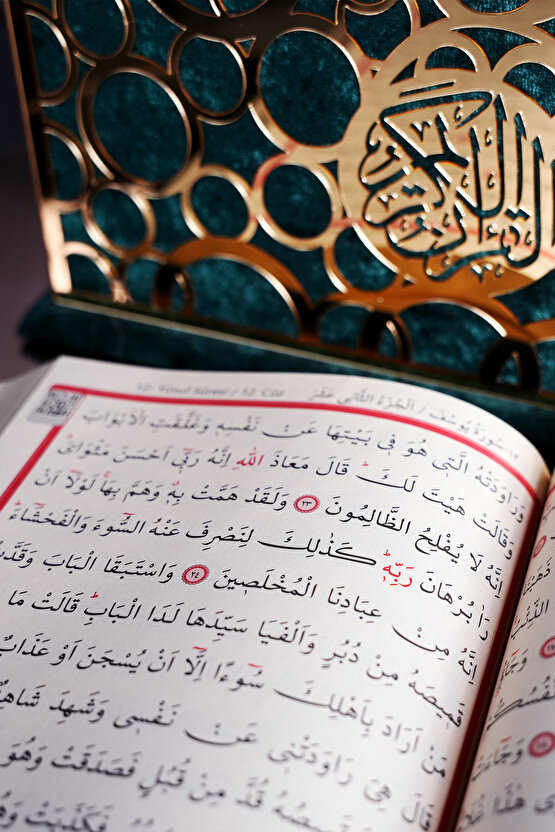 القرآن الكريم
12- Yusuf Sûresi / 12. Cüz
١٢-سُورَةُ يُوسُفَ / اَلْجُزْءُ الثَّانِي عَشَرَ
وَرَاوَدَتْهُ الَّت۪ي هُوَ ف۪ي بَيْتِهَا عَنْ نَفْسِه۪ وَغَلَّقَتِ الْاَبْوَابَ
وَقَالَتْ هَيْتَ لَكَۜ قَالَ مَعَاذَ اللّٰهِ اِنَّهُ رَبّ۪ٓي اَحْسَنَ مَثْوَايَۜ
اِنَّهُ لَا يُفْلِحُ الظَّالِمُونَ ﴿٢٣﴾ وَلَقَدْ هَمَّتْ بِه۪ۚ وَهَمَّ بِهَاۚ لَوْلَٓا اَنْ
رَاٰ بُرْهَانَ رَبِّه۪ۜ كَذٰلِكَ لِنَصْرِفَ عَنْهُ السُّٓوءَ وَالْفَحْشَٓاءَۜ
اِنَّهُ مِنْ عِبَادِنَا الْمُخْلَص۪ينَ ﴿٢٤﴾ وَاسْتَبَقَا الْبَابَ وَقَدَّتْ
قَم۪يصَهُ مِنْ دُبُرٍ وَاَلْفَيَا سَيِّدَهَا لَدَا الْبَابِۜ قَالَتْ مَا
مَنْ اَرَادَ بِاَهْلِكَ سُٓوءًا اِلَّٓا اَنْ يُسْجَنَ اَوْ عَذَابٌ
قَالَ هِيَ رَاوَدَتْن۪ي عَنْ نَفْس۪ي وَشَهِدَ شَاهِدٌ
قَم۪يصُهُ قُدَّ مِنْ قُبُلٍ فَصَدَقَتْ وَهُوَ
فَكَذَبَتْ وَهُوَ